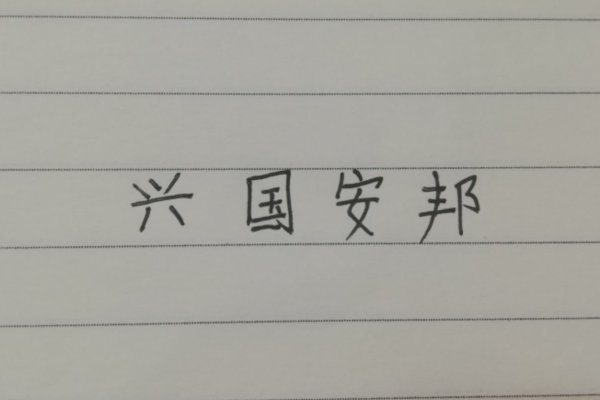 兴国安邦